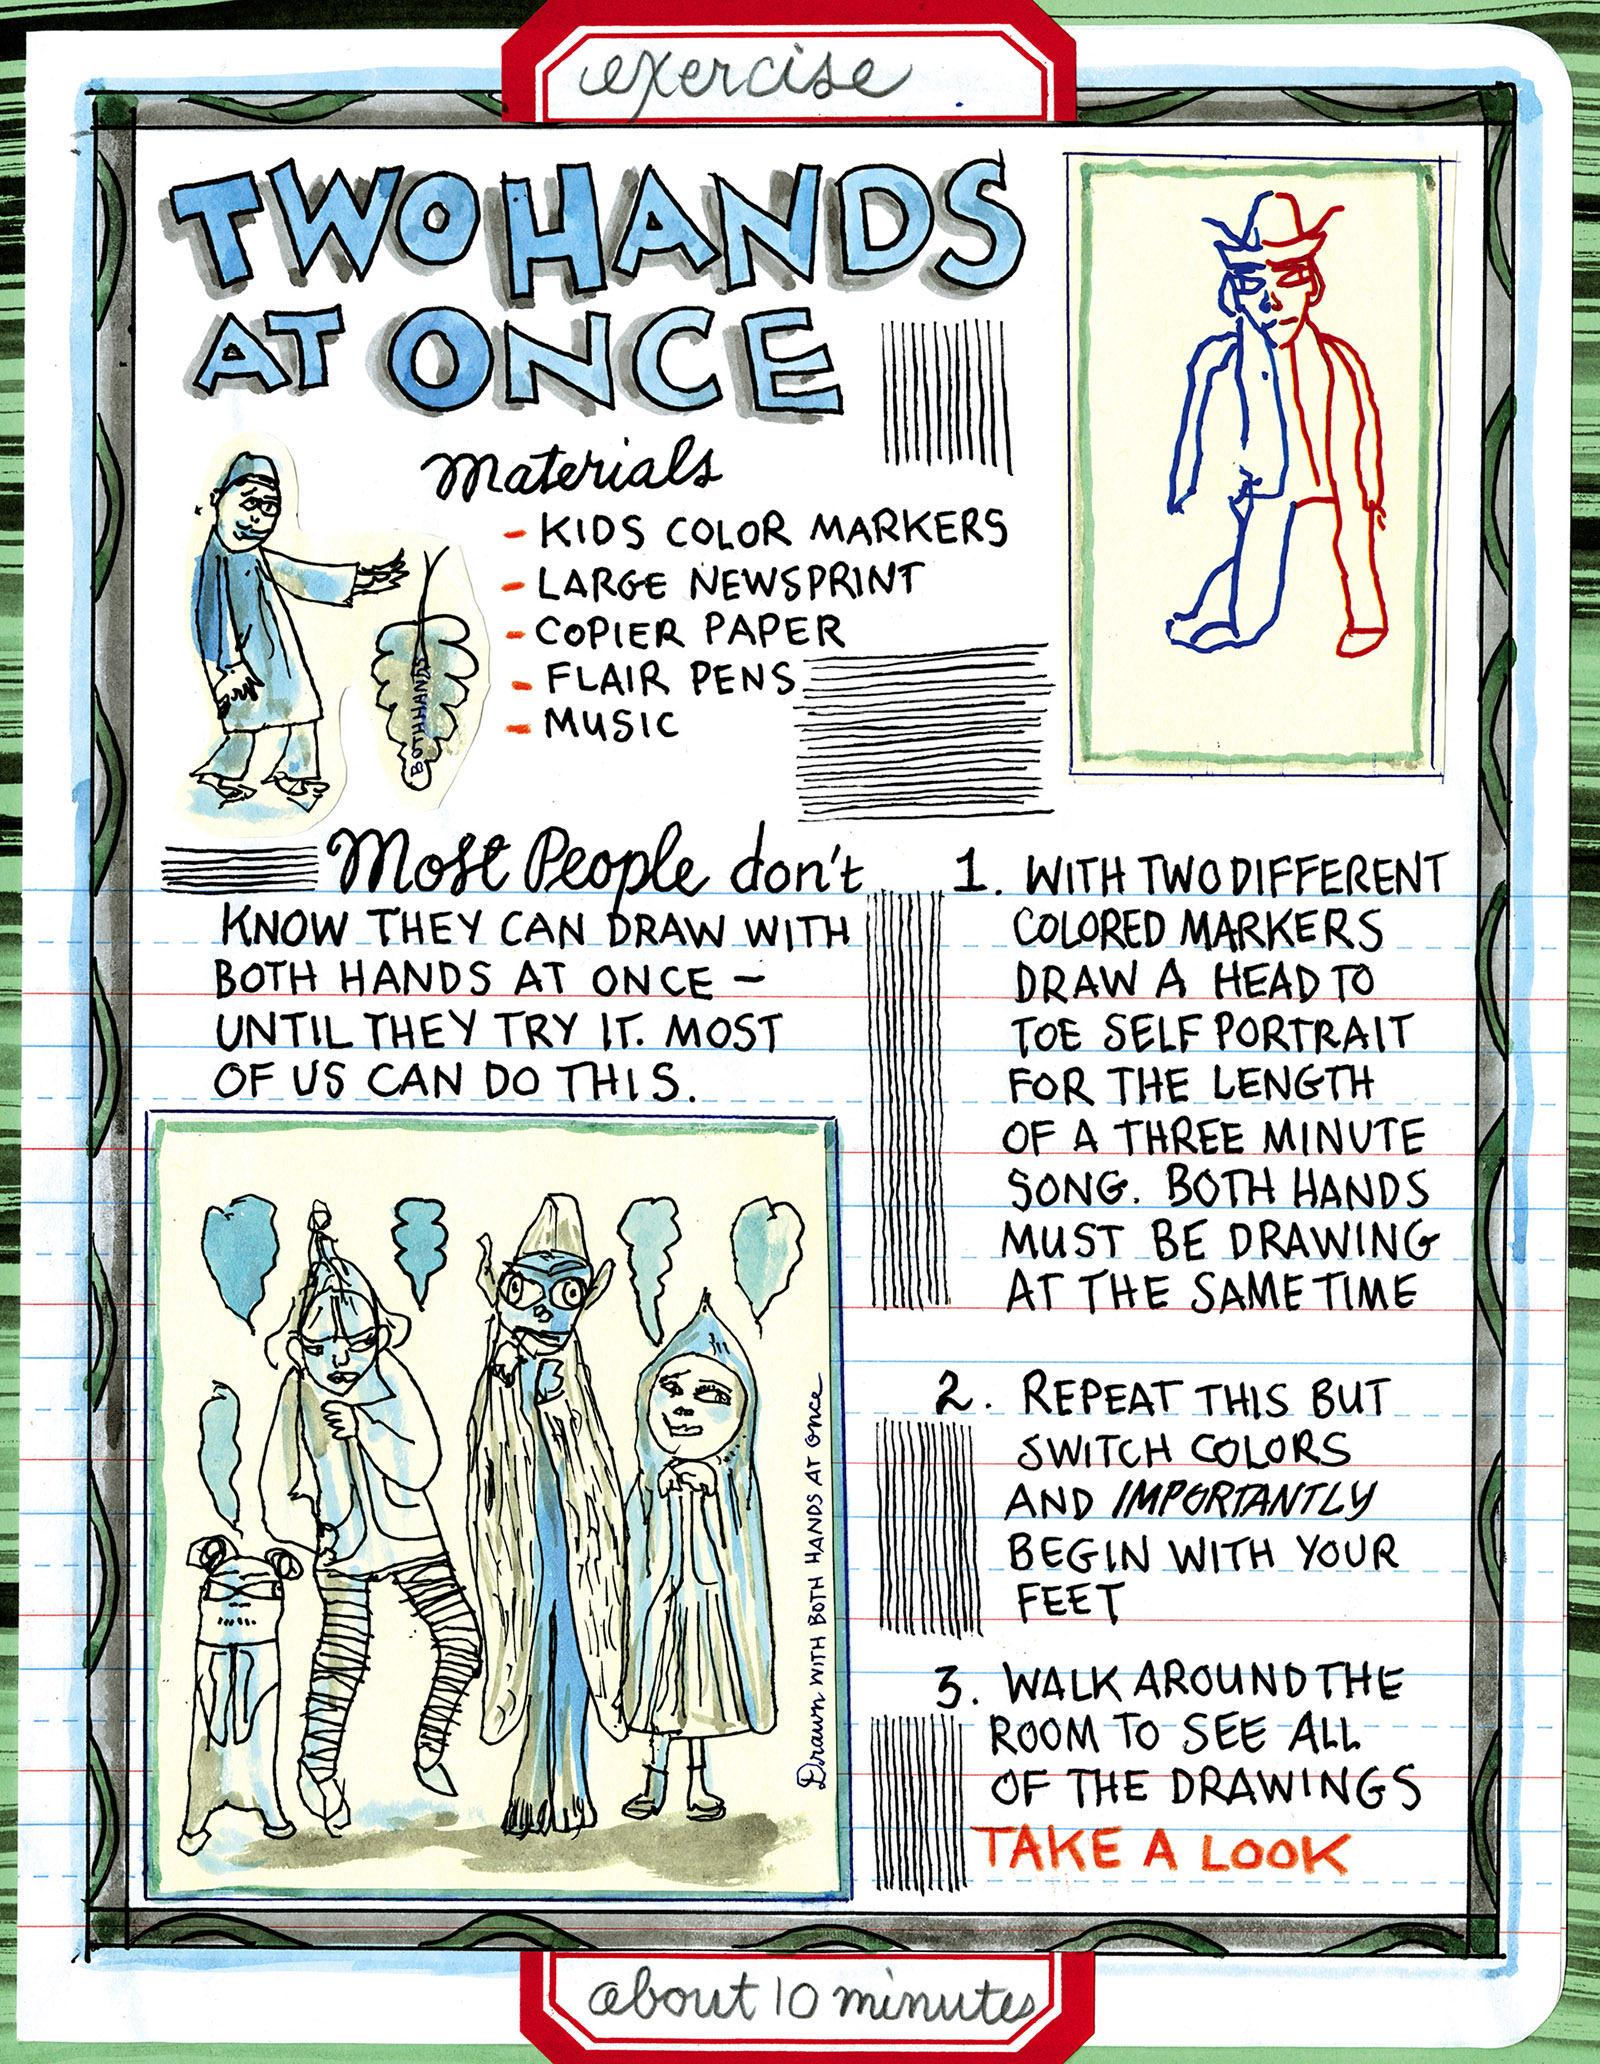 exercise
TWO HANDS
AT ONCE
Materials
- KIDS COLOR MARKERS
- LARGE NEWSPRINT
- COPIER PAPER
- FLAIR PENS
- MUSIC
BOTH HANDS
Most People don't
KNOW THEY CAN DRAW WITH
BOTH HANDS AT ONCE –
UNTIL THEY TRY IT. MOST
OF US CAN DO THIS.
Drawn WITH BOTH HANDS AT Once
1. WITH TWO DIFFERENT
COLORED MARKERS
DRAW A HEAD TO
TOE SELF PORTRAIT
FOR THE LENGTH
OF A THREE MINUTE
SONG. BOTH HANDS
MUST BE DRAWING
AT THE SAME TIME
2. REPEAT THIS BUT
SWITCH COLORS
AND IMPORTANTLY
BEGIN WITH YOUR
FEET
3. WALK AROUND THE
ROOM TO SEE ALL
OF THE DRAWINGS
TAKE A LOOK
about 10 minutes